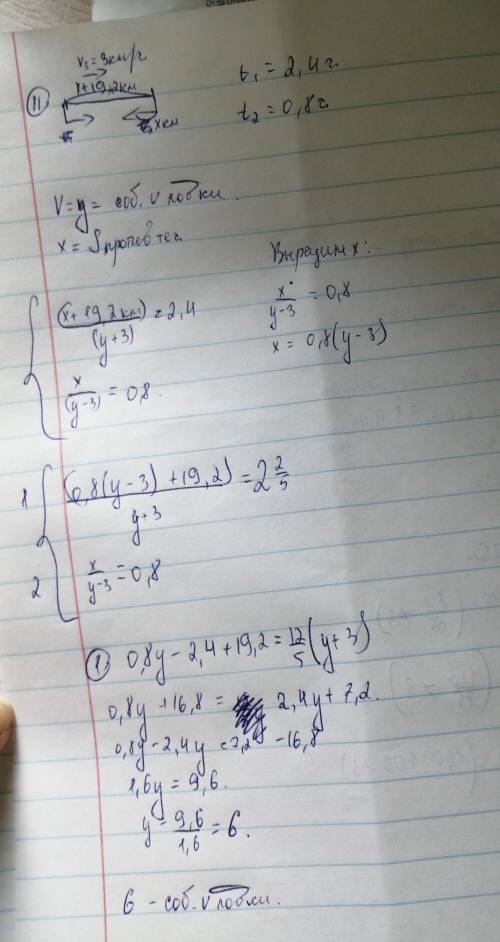 11
V₃ = 3км/ч
x+19,2км
xкм
t₁ = 2,4ч.
t₂ = 0,8ч.
V=y= соб. v лодки.
x = S против теч
Выразим x:
(x+19,2км)/(y+3) = 2,4
x/(y-3) = 0,8.
x/(y-3) = 0,8
x = 0,8(y-3)
1 (0,8(y-3)+19,2)/(y+3) = 2 2/5
2 x/(y-3) = 0,8
1 0,8y-2,4+19,2 = 12/5 (y+3)
0,8y+16,8 = 2,4y+7,2.
0,8y-2,4y = 7,2-16,8
1,6y = 9,6.
y = 9,6/1,6 = 6.
6 - соб. v лодки.